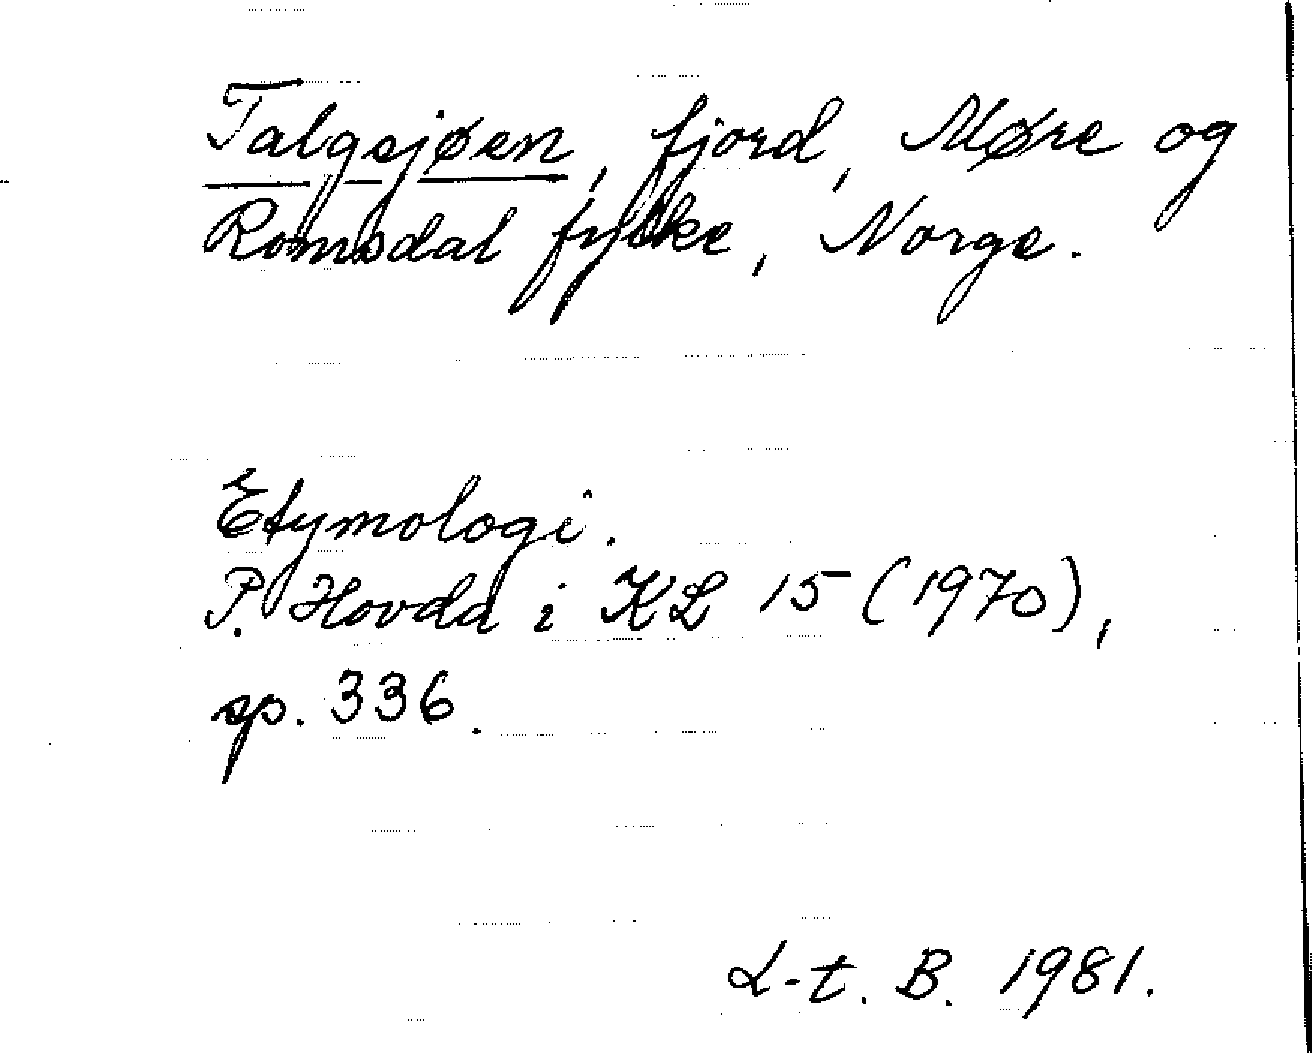 Talgsjøen, fjord, Møre og
Romsdal fylke, Norge.
Etymologi.
P. Hovda i KL 15 (1970),
sp. 336.
L-t. B. 1981.